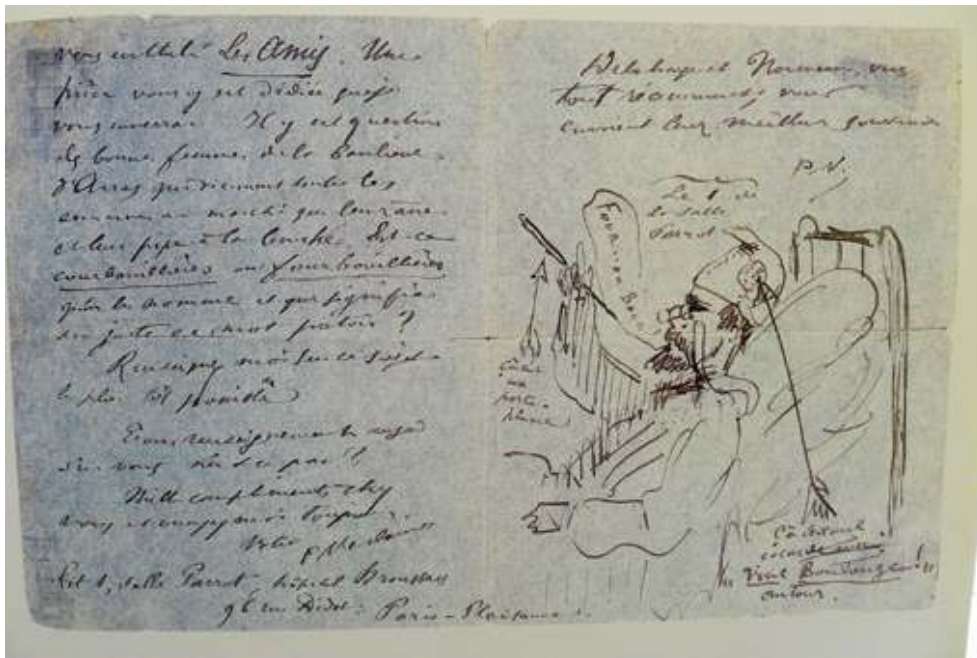 vers intitulé Les Amis. Une
pièce vous y est dédiée que je
vous enverrai. Il y est question
de bonnes femmes de la banlieue
d'Arras qui viennent toutes les
semaines au marché sur leur âne
et leur pipe à la bouche. Est-ce
courbouillères ou fourbouillères
qu'on les nomme et que signifie
au juste ce mot patois ?
Renseignez-moi sur ce sujet
le plus tôt possible
Et vous
n'est-ce pas ?
Mille compliments chez
vous et croyez-moi toujours
Votre P. Verlaine
Lit 1, salle Parrot - hôpital Broussais
96 rue Didot - Paris-Plaisance.
Delahaye et Nouveau, vus
tout récemment, vous
envoient leur meilleur souvenir
P.V.
Le 1 de
la salle
Parrot
Çà c'est
un
porte-
plume
Çà c'est
Vive Boulanger !!
autour.